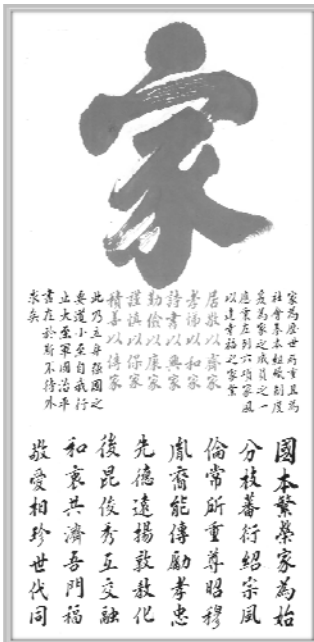 家
家為歷世所重且為
社會基本組織制度
爰為家之成員之一
應秉左列六項家風
以建幸福之家業
居敬以齊家
孝悌以和家
詩書以興家
勤儉以康家
謹慎以保家
積善以傳家
此乃立身強國之
要道小至自我行
止大至軍國治平
盡在於斯不待外
求矣
國本繁榮家為始
分枝蕃衍紹宗風
倫常所重尊昭穆
胤裔能傳勵孝忠
先德遠揚敦教化
後昆俊秀互交融
和衷共濟吾門福
敬愛相珍世代同